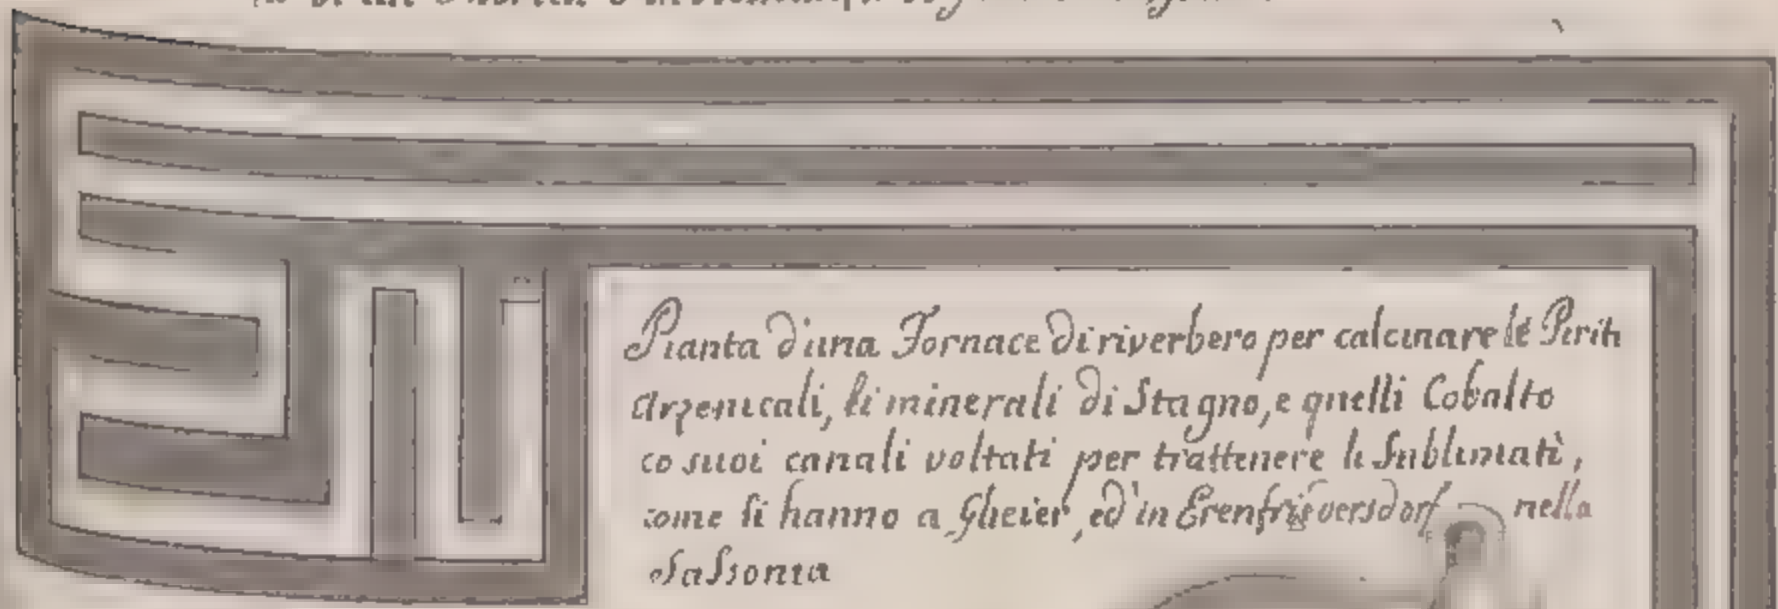 Pianta d'una Fornace di riverbero per calcinare le Piriti
Arzenicali, li minerali di Stagno, e quelli Cobalto
co suoi canali voltati per trattenere li Sublimati,
come si hanno a Gheier, ed in Erenfrisversdorf nella
Sassonia